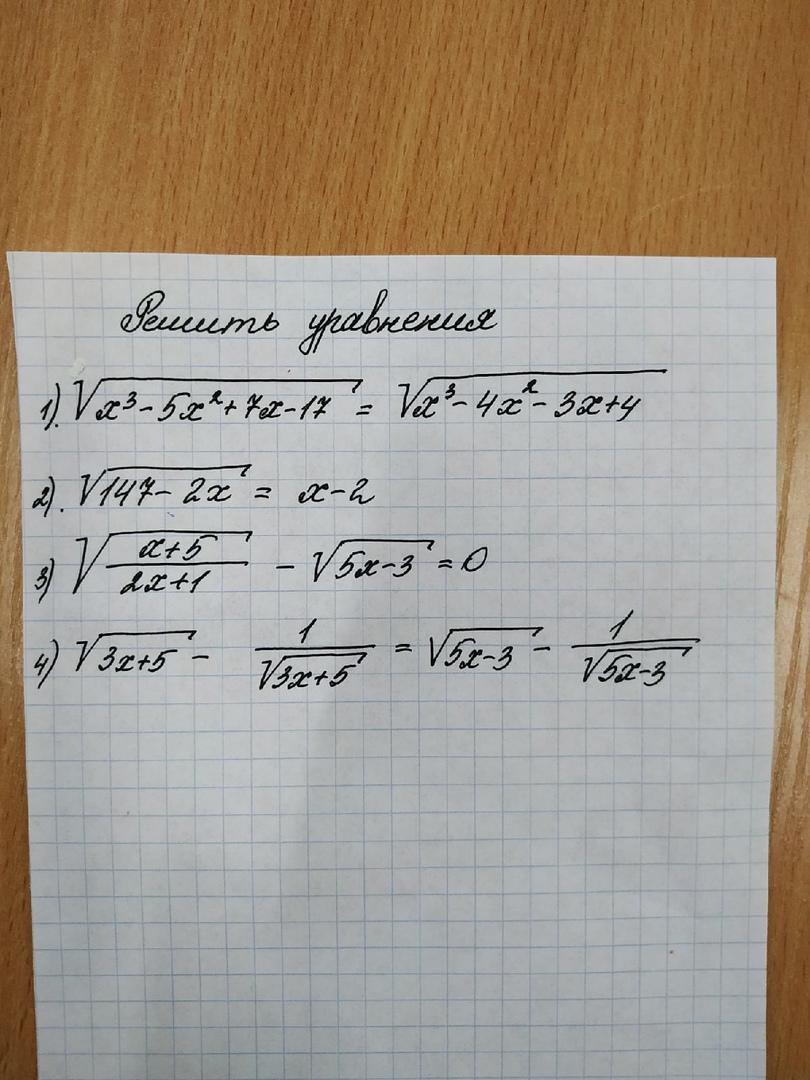 Решить уравнения
1). √(x³ - 5x² + 7x - 17) = √(x³ - 4x² - 3x + 4)
2). √(147 - 2x) = x - 2
3) √((x+5)/(2x+1)) - √(5x-3) = 0
4) √(3x+5) - 1/√(3x+5) = √(5x-3) - 1/√(5x-3)